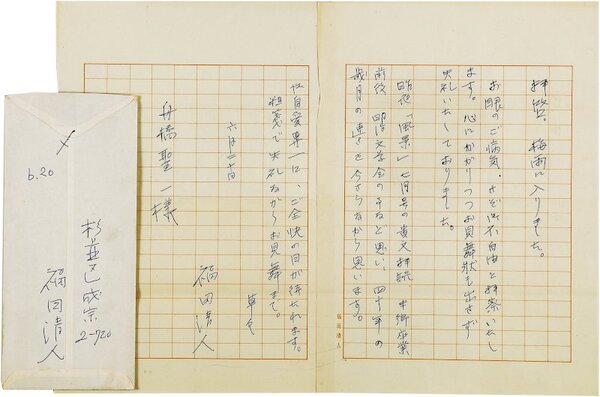 拝啓。梅雨に入りました。
お眼のご病気、さぞ御不自由と拝察いたし
ます。心にかかりつつお見舞状も出さず
失礼いたしておりました。
昨夜「風景」七月号の貴文拝読
前後、明治文学会のすなと思い、四十年の
歳月の速さを今さらながら思います。
御自愛専一に、ご全快の日が待たれます。
粗箋で失礼ながらお見舞まで。
草々
六月二十日
福田清人
舟橋聖一様
福田清人
6.20
杉並区成宗
2-720
福田清人